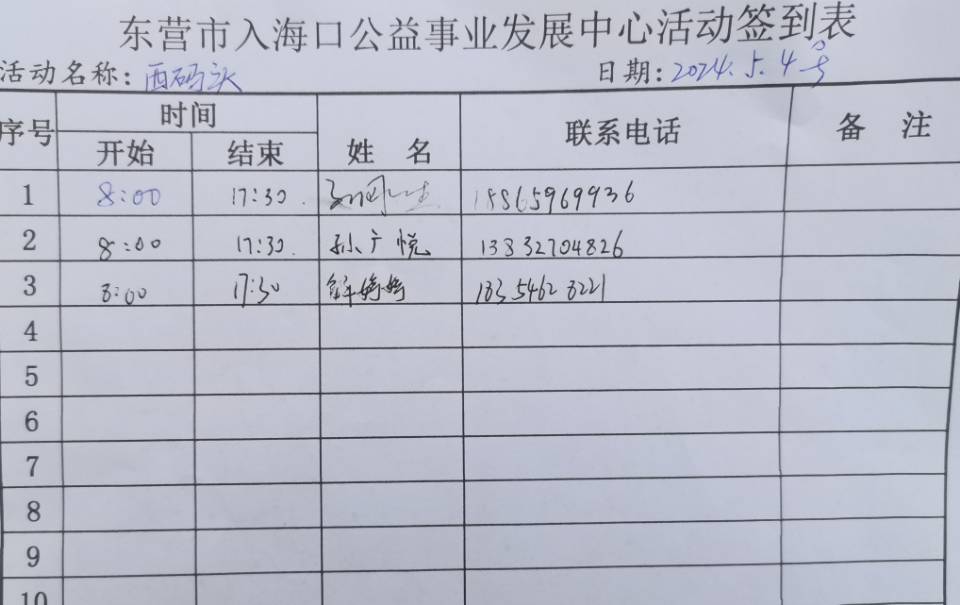 东营市入海口公益事业发展中心活动签到表
活动名称: 西码头 日期: 2024.5.4号
序号 时间 姓名 联系电话 备注
开始 结束
1 8:00 17:30 18865969936
2 8:00 17:30 孙广悦 13332704826
3 8:00 17:30 解婷婷 18354628221
4
5
6
7
8
9
10